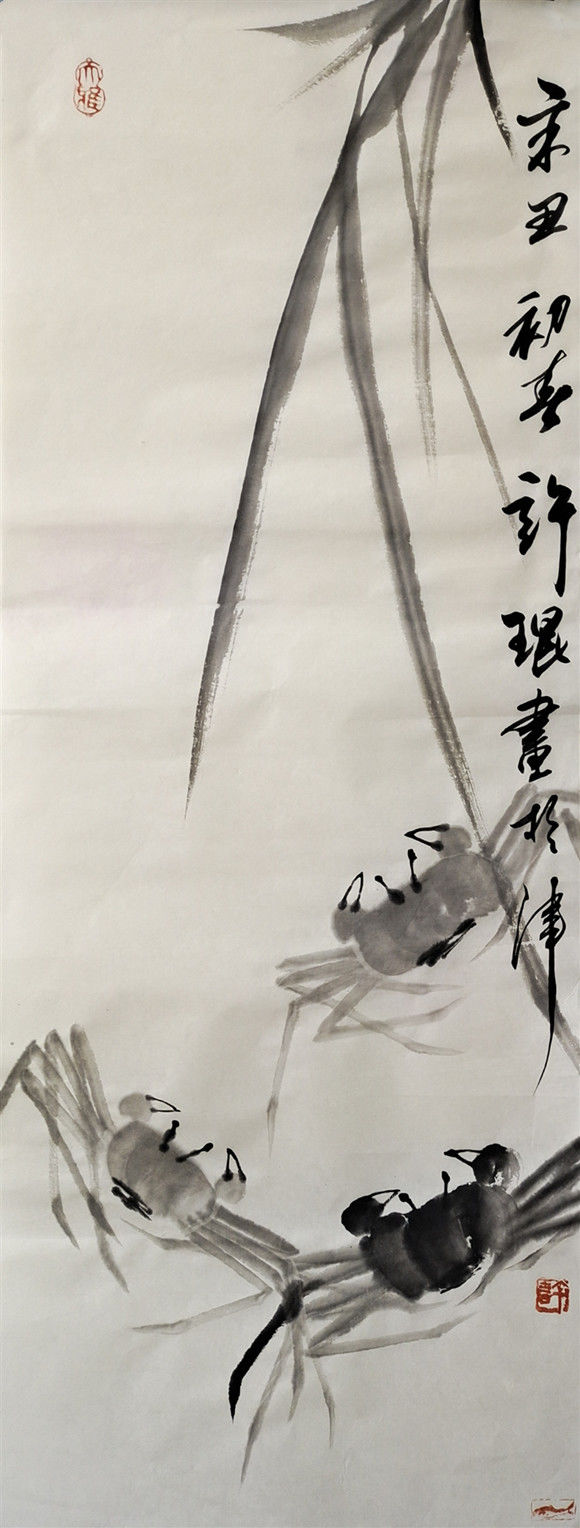 辛丑初春許琨畫於津
大雅
許